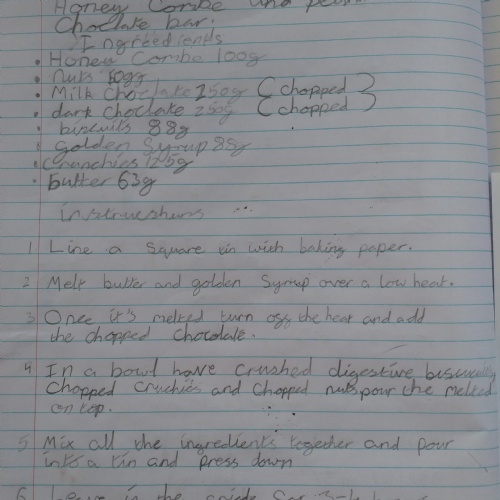 Honey Combe and
Choclate bar.
Ingreedients
• Honey Combe 100g
• Nuts
• Milk Choclate 250g (chopped)
• dark choclate 250g (chopped)
• biscuits 88g
• golden Syrup 88g
• Crunchies 125g
• butter 63g
instructions
1 Line a square tin with baking paper.
2 Melt butter and golden Syrup over a low heat.
3 Once it's melted turn off the heat and add
the chopped chocolate.
4 In a bowl have crushed digestive
chopped cruchies and chopped nuts pour the melted
on top.
5 Mix all the ingredients together and pour
into a tin and press down
6 Leave in the